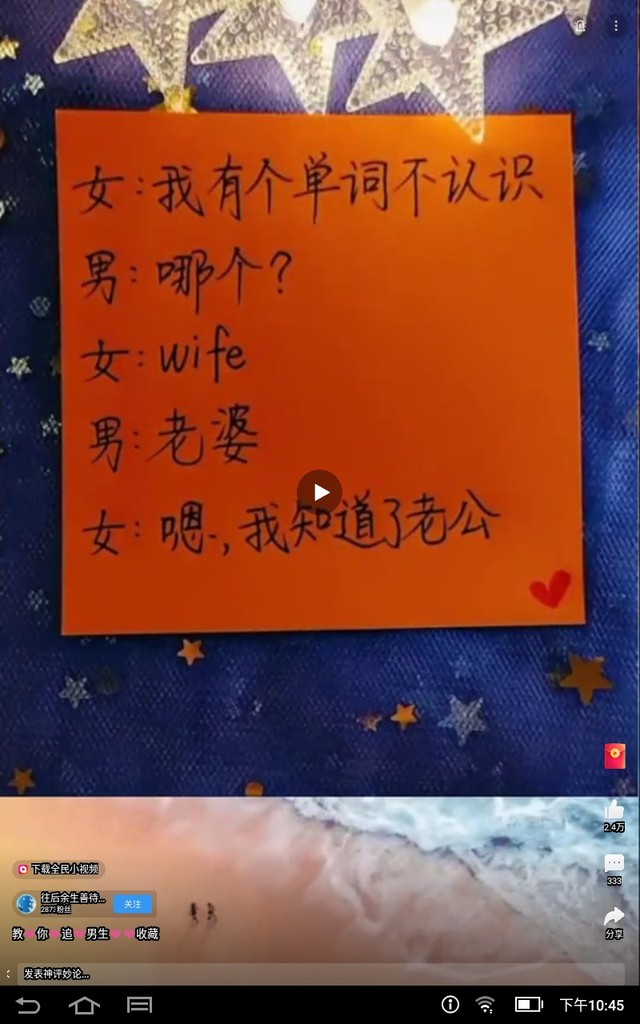 女：我有个单词不认识
男：哪个？
女：wife
男：老婆
女：嗯、，我知道了老公
2.4万
333
分享
下载全民小视频
往后余生善待...
2873粉丝
关注
教❤你❤追❤男生❤❤收藏
发表神评妙论...
下午10:45